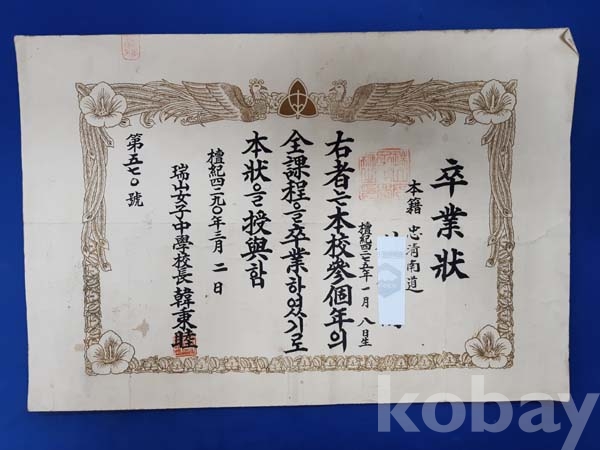 卒業狀
本籍 忠淸南道
檀紀四二七五年一月八日生
右者는本校參個年의
全課程을卒業하였기로
本狀을授與함
檀紀四二九〇年三月二日
瑞山女子中學校長 韓東睦
第五七〇號
中
kobay